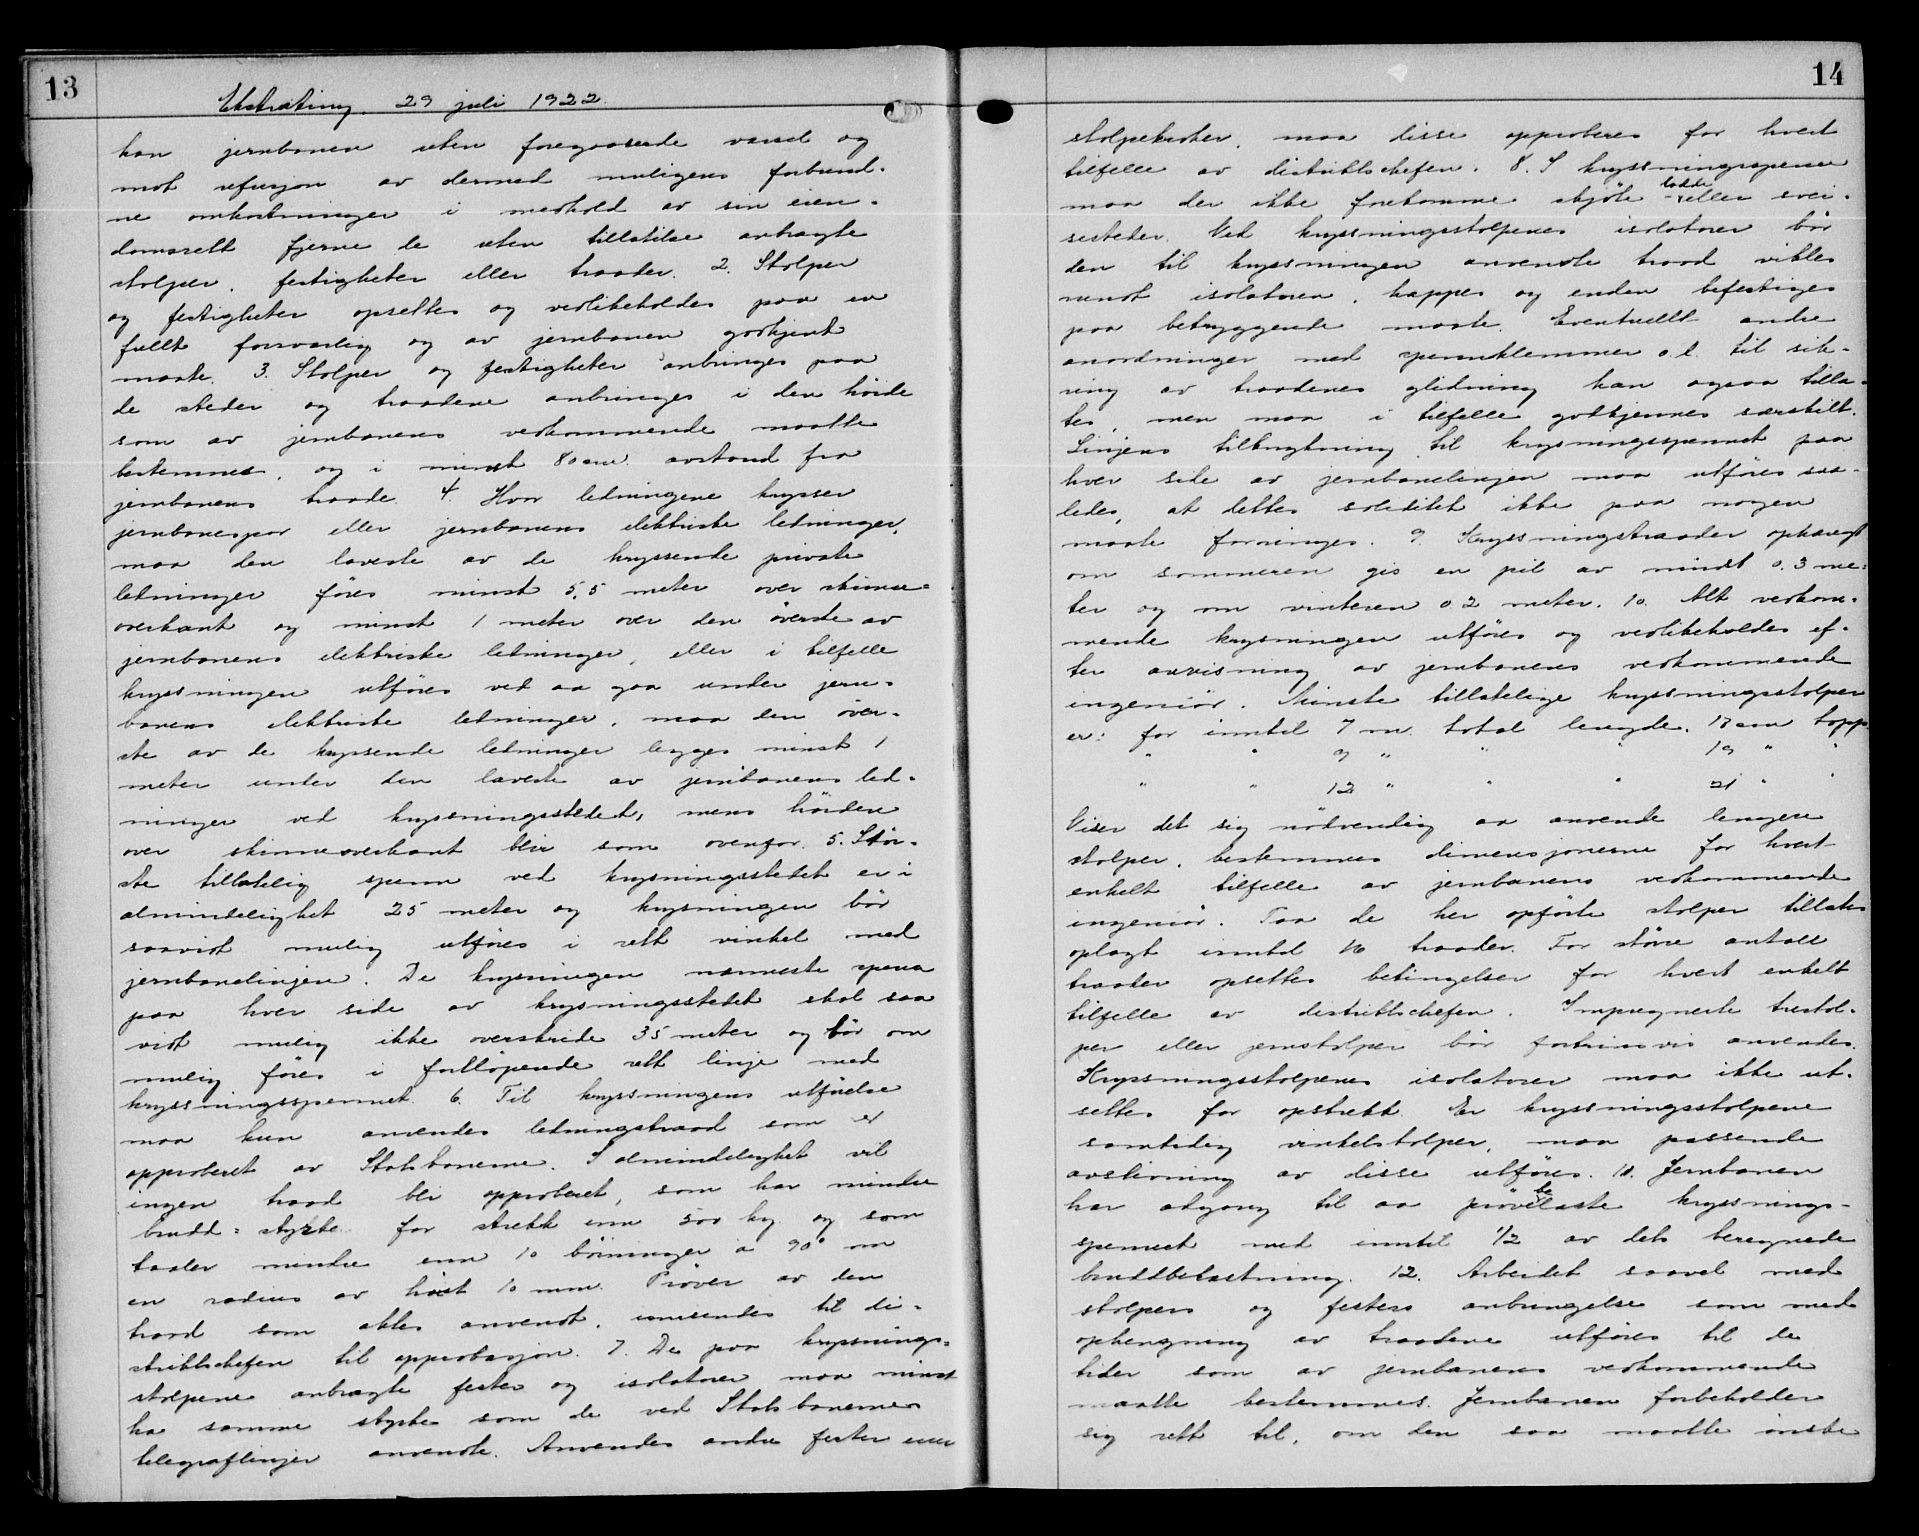 13
Ekstrating. 29 juli 1922.
kan jernbanen uten foregaaende varsel og
mot refusjon av dermed muligens forbund-
ne omkostninger i medhold av sin eien-
domsrett fjerne de uten tillatelse anbragte
stolper, festigheter eller traader. 2. Stolper
og festigheter opsettes og vedlikeholdes paa en
fullt forsvarlig og av jernbanen godkjent
maate. 3. Stolper og festigheter anbringes paa
de steder og traadene anbringes i den höide
som av jernbanens vedkommende maatte
bestemmes, og i minst 80 cm. avstand fra
jernbanens traade. 4. Hvor ledningene krysser
jernbanespor eller jernbanens elektriske ledninger,
maa den laveste av de kryssende private
ledninger föres minst 5,5 meter over skinne=
overkant og minst 1 meter over den överste av
jernbanens elektriske ledninger, eller i tilfelle
kryssningen utföres ved aa gaa under jern-
banens elektriske ledninger, maa den över-
ste av de kryssende ledninger legges minst 1
meter under den laveste av jernbanens led-
ninger ved kryssningsstedet, mens höiden
over skinneoverkant blir som ovenfor. 5. Stör-
ste tillatelig spenn ved krysningsstedet er i
almindelighet 25 meter og krysningen bör
saavidt mulig utföres i rett vinkel med
jernbanelinjen. De krysningen nærmeste spenn
paa hver side av krysningsstedet skal saa
vidt mulig ikke overskride 35 meter og bör om
mulig föres i fortlöpende rett linje med
kryssningsspennet. 6. Til kryssningens utförelse
maa kun anvendes ledningstraad som er
approbert av Statsbanerne. I almindelighet vil
ingen traad bli approbert, som har mindre
brudd=styrke for strekk enn 500 kg. og som
taaler mindre enn 10 böininger a 90° om
en radius av höist 10 mm. Pröver av den
traad som aktes anvendt, innsendes til di-
striktschefen til approbasjon. 7. De paa kryssnings=
stolpene anbragte fester og isolatorer maa minst
ha samme styrke som de ved Statsbanernes
telegraflinjer anvendte. Anvendes andre fester enn
14
stolpekroker, maa disse approberes for hvert
tilfelle av distriktschefen. 8. I kryssningsspennene
maa der ikke forekomme skjöte- lodde eller svei-
sesteder. Ved kryssningsstolpenes isolatorer bör
den til kryssningen anvendte traad vikles
rundt isolatoren, kappes og enden befestiges
paa betryggende maate. Eventuellt andre
anordninger med spennklemmer o.l. til sik-
ring av traadenes glidning kan ogsaa tilla-
tes, men maa i tilfelle godkjennes særskilt.
Linjens tilknytning til krysningsspennet paa
hver side av jernbanelinjen maa utföres saa-
ledes, at dettes soliditet ikke paa nogen
maate forringes. 9. Kryssningstraader ophengt
om sommeren gis en pil av mindst 0.3 me=
ter og om vinteren 0.2 meter. 10. Alt vedkom-
mende krysningen utföres og vedlikeholdes ef-
ter anvisning av jernbanens vedkommende
ingeniör. Minste tillatelige kryssningsstolper
er: for inntil 7 m. total lengde. 17 cm topp.
" " 9 " " " 19 " "
" " 12 " " " 21 " "
Viser det sig nödvendig aa anvende lengere
stolper, bestemmes dimensjonerne for hvert
enkelt tilfelle av jernbanens vedkommende
ingeniör. Paa de her opförte stolper tillates
oplagt inntil 16 traader. For större antall
traader opsettes betingelser for hvert enkelt
tilfelle av distriktschefen. Impregnerte trestol-
per eller jernstolper bör fortrinsvis anvendes.
Kryssningsstolpenes isolatorer maa ikke ut-
settes for opstrekk. Er kryssningsstolpene
samtidig vinkelstolper, maa passende
avstivning av disse utföres. 11. Jernbanen
har adgang til aa pröve be laste kryssnings-
spennet med inntil 1/2 av dets beregnede
bruddbelastning. 12. Arbeidet saavel med
stolpers og festers anbringelse som med
ophengning av traadene utföres til de
tider som av jernbanens vedkommende
maatte bestemmes. Jernbanen forbeholder
sig rett til, om den saa maatte önske